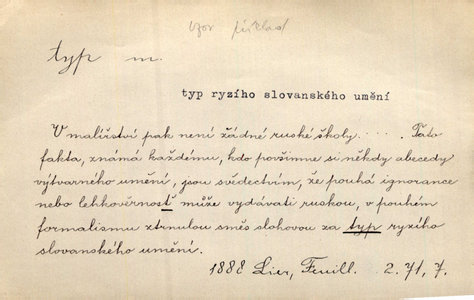 vzor příklad
typ m.
typ ryzího slovanského umění
V malířství pak není žádné ruské školy . . . . . Tato
fakta, známá každému, kdo povšimne si někdy abecedy
výtvarného umění, jsou svědectvím, že pouhá ignorance
nebo lehkověrnosť může vydávati ruskou, v pouhém
formalismu ztrnulou směs slohovou za typ ryzího
slovanského umění.
1888 Lier, Feuill. 2. 71, 7.